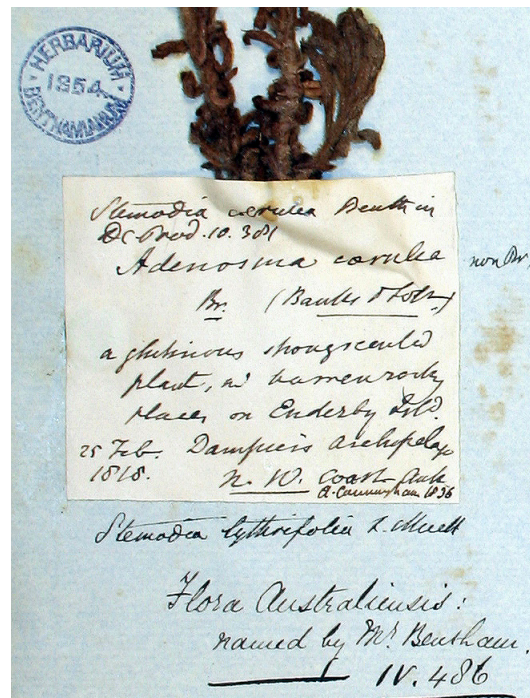 HERBARIUM
1854
BENTHAMIANUM
Stemodia cœrulea Benth in
DC Prod. 10. 381
Adenosma cœrulea non Br
Br. (Banks & Sol.)
a glutinous strongscented
plant, in barren rocky
places on Enderby Isld.
25 Feb. Dampier's Archipelago
1818. N. W. coast
A. Cunningham 1836
Stemodia lythrifolia F. Muell
Flora Australiensis:
named by Mr. Bentham.
IV. 486